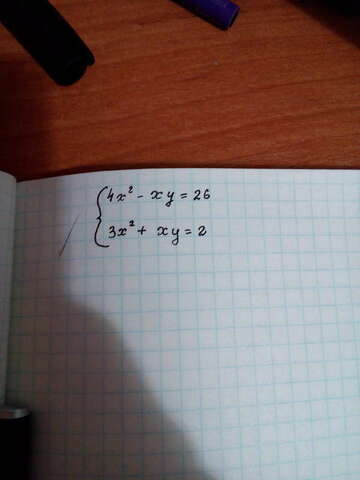 4x² - xy = 26
3x² + xy = 2